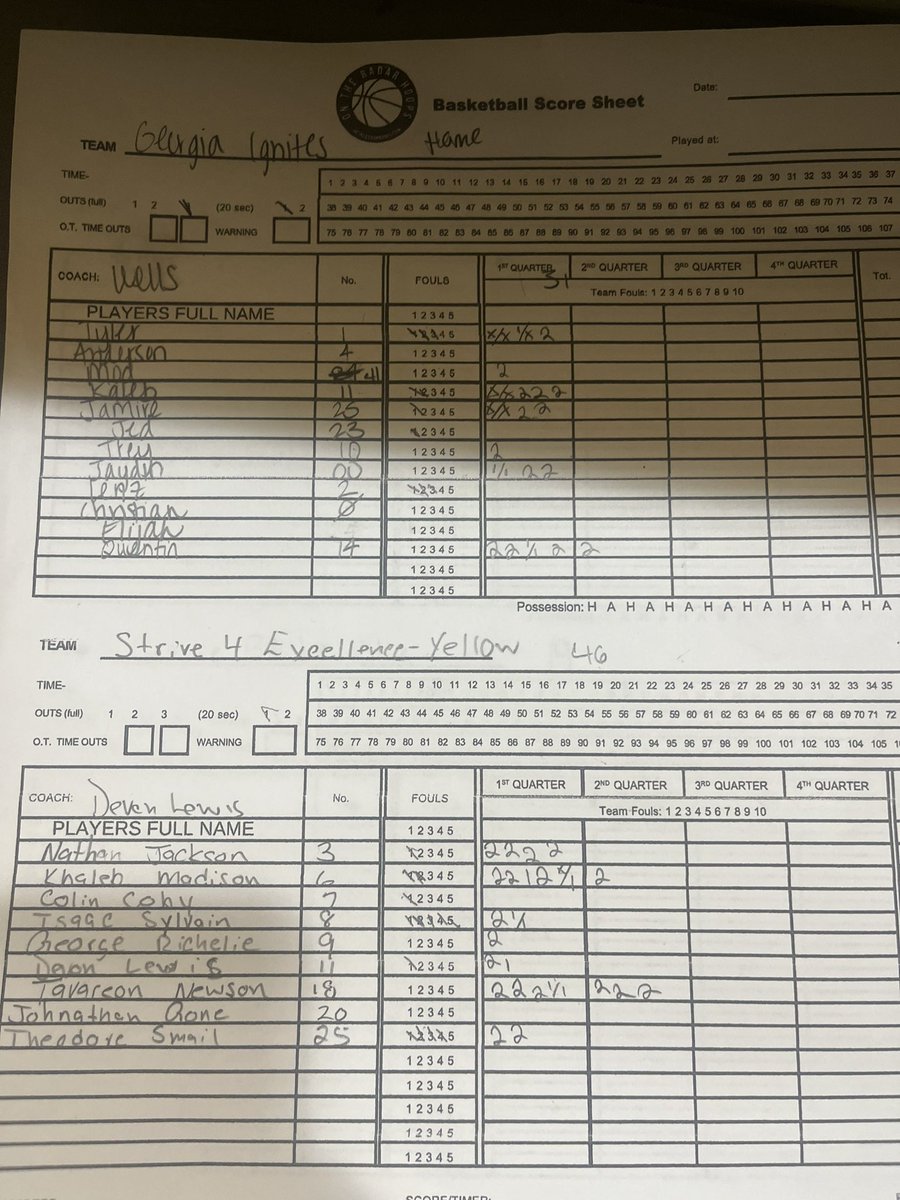 ON THE RADAR HOOPS
Basketball Score Sheet
Date:
TEAM Georgia Ignites Home
Played at:
TIME-
1 2 3 4 5 6 7 8 9 10 11 12 13 14 15 16 17 18 19 20 21 22 23 24 25 26 27 28 29 30 31 32 33 34 35 36 37
OUTS (full) 1 2 (20 sec) 2
38 39 40 41 42 43 44 45 46 47 48 49 50 51 52 53 54 55 56 57 58 59 60 61 62 63 64 65 66 67 68 69 70 71 72 73 74
O.T. TIME OUTS WARNING
75 76 77 78 79 80 81 82 83 84 85 86 87 88 89 90 91 92 93 94 95 96 97 98 99 100 101 102 103 104 105 106 107
COACH: Wells No. FOULS 1ST QUARTER 2ND QUARTER 3RD QUARTER 4TH QUARTER Tot.
31
Team Fouls: 1 2 3 4 5 6 7 8 9 10
PLAYERS FULL NAME 1 2 3 4 5
Tyler 1 1 2 3 4 5 x/x 1/x 2
Anderson 4 1 2 3 4 5
Mod 41 1 2 3 4 5 2
Kaleb 11 1 2 3 4 5 x/x 2 2 2
Jamire 25 1 2 3 4 5 x/x 2 2
Jed 23 1 2 3 4 5
Trey 10 1 2 3 4 5 2
Jaydin 00 1 2 3 4 5 1/1 2 2
2 1 2 3 4 5
Christian 0 1 2 3 4 5
Elijah 1 2 3 4 5
Quentin 14 1 2 3 4 5 2 2 1/1 2 2
1 2 3 4 5
1 2 3 4 5
Possession: H A H A H A H A H A H A H A H A
TEAM Strive 4 Excellence-Yellow 46
TIME-
1 2 3 4 5 6 7 8 9 10 11 12 13 14 15 16 17 18 19 20 21 22 23 24 25 26 27 28 29 30 31 32 33 34 35
OUTS (full) 1 2 3 (20 sec) 1 2
38 39 40 41 42 43 44 45 46 47 48 49 50 51 52 53 54 55 56 57 58 59 60 61 62 63 64 65 66 67 68 69 70 71 72
O.T. TIME OUTS WARNING
75 76 77 78 79 80 81 82 83 84 85 86 87 88 89 90 91 92 93 94 95 96 97 98 99 100 101 102 103 104 105
COACH: Deven Lewis No. FOULS 1ST QUARTER 2ND QUARTER 3RD QUARTER 4TH QUARTER
Team Fouls: 1 2 3 4 5 6 7 8 9 10
PLAYERS FULL NAME 1 2 3 4 5
Nathan Jackson 3 1 2 3 4 5 2 2 2 2
Khaleb Madison 6 1 2 3 4 5 2 2 1 2 1/1 2
Colin Coby 7 1 2 3 4 5
Isaac Sylvain 8 1 2 3 4 5 2 1/
George Richelie 9 1 2 3 4 5 2
Devon Lewis 11 1 2 3 4 5 2 1
Tavareon Newson 18 1 2 3 4 5 2 2 2 1/1 2 2 2
Johnathan Gone 20 1 2 3 4 5
Theodore Smail 25 1 2 3 4 5 2 2
1 2 3 4 5
1 2 3 4 5
1 2 3 4 5
1 2 3 4 5
1 2 3 4 5
SCORE/TIMER: